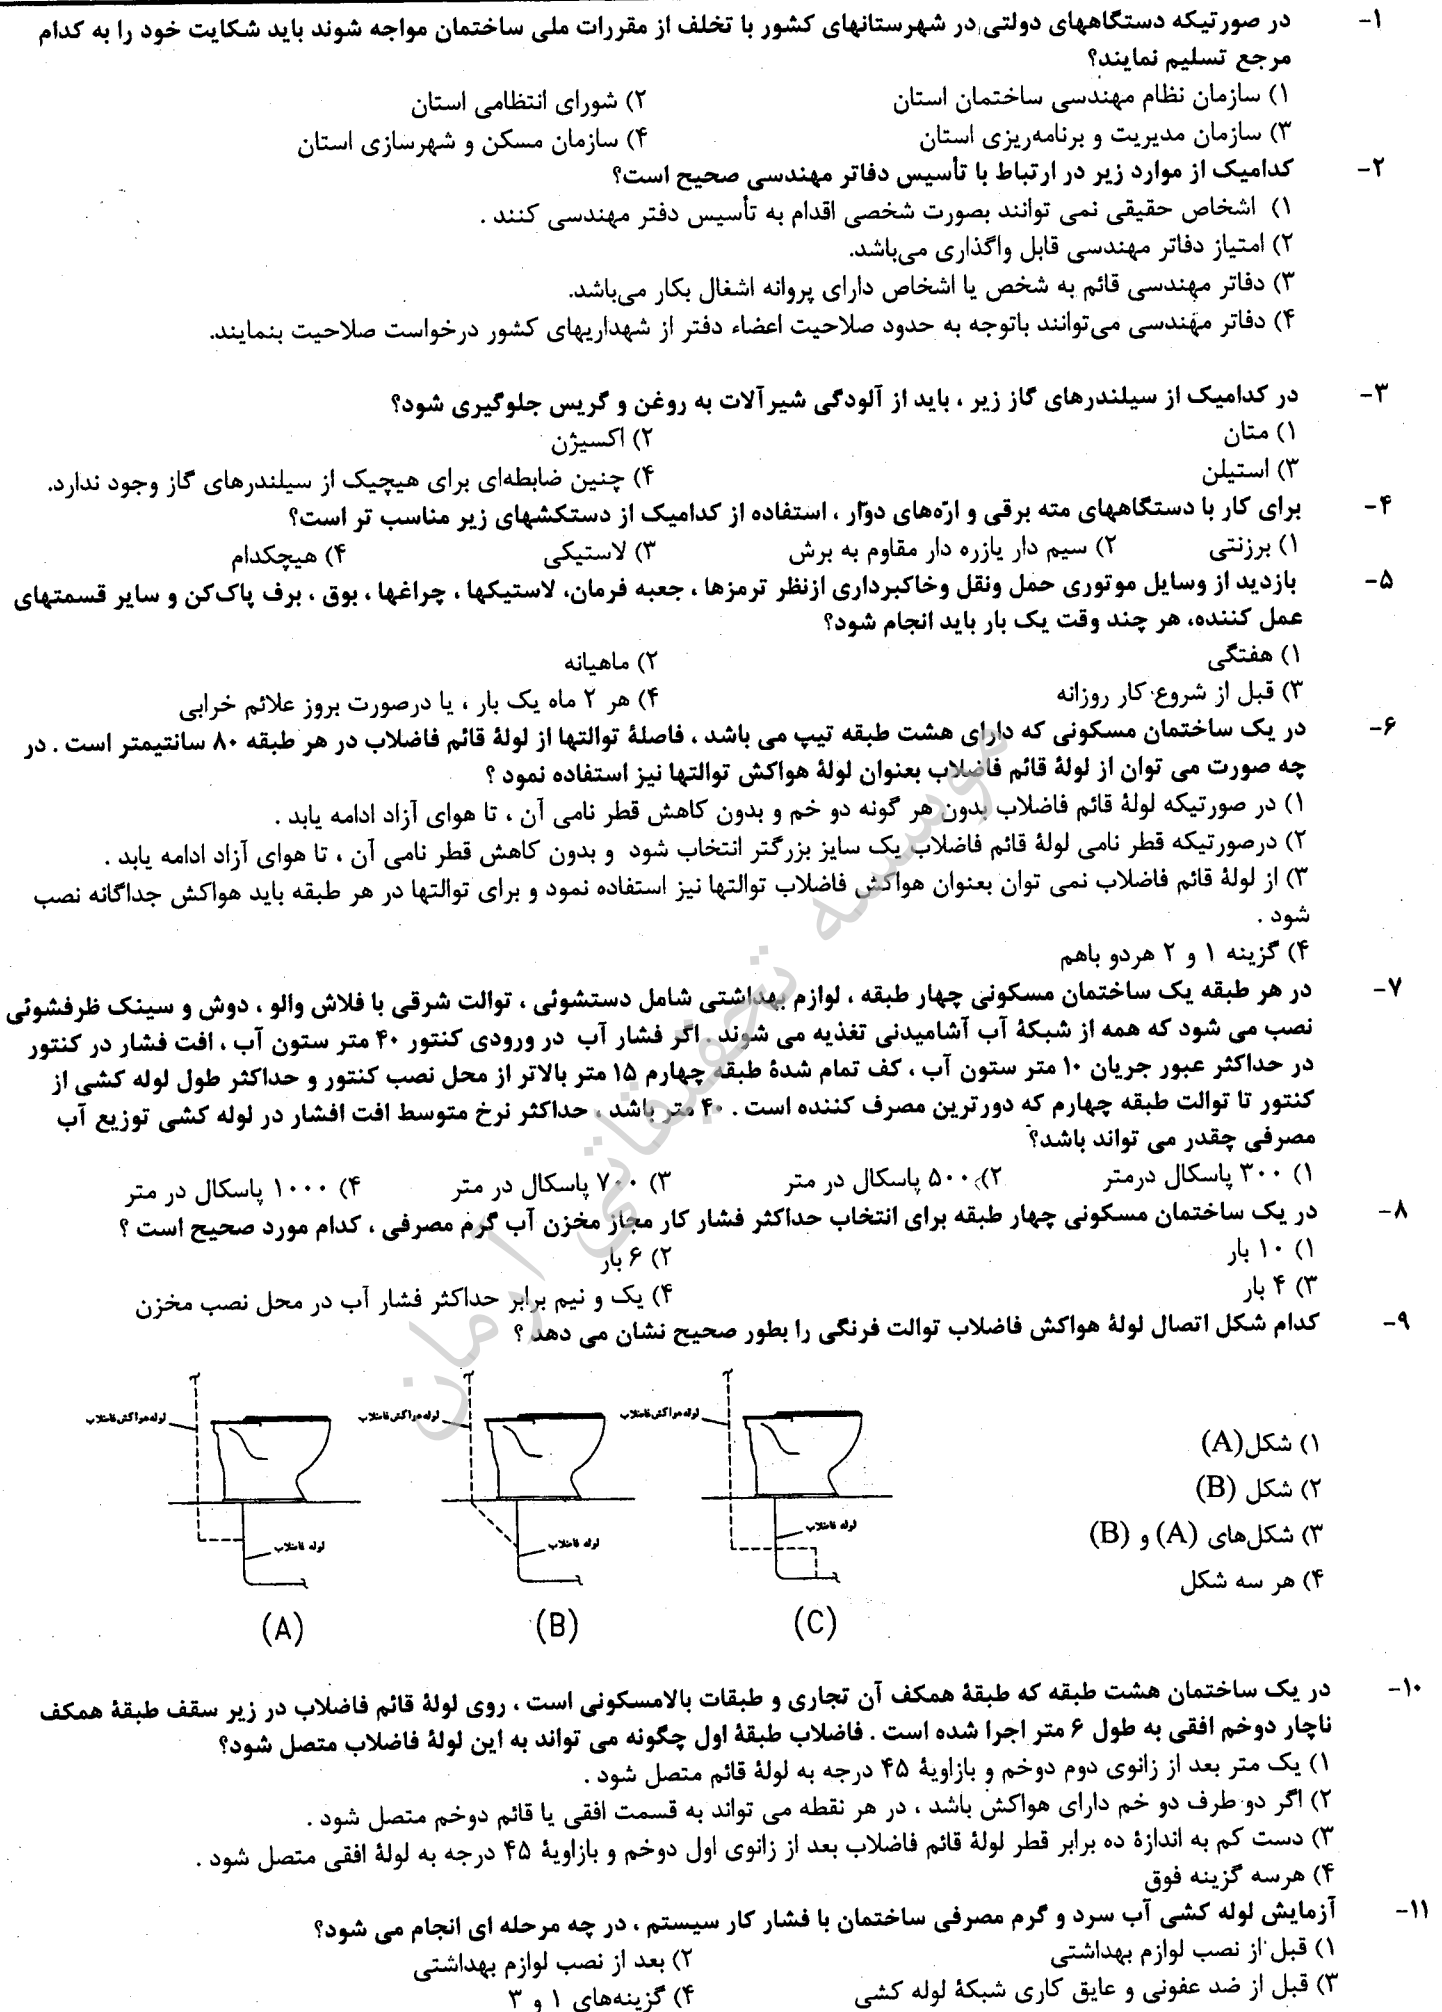 ۱- در صورتیکه دستگاههای دولتی در شهرستانهای کشور با تخلف از مقررات ملی ساختمان مواجه شوند باید شکایت خود را به کدام
مرجع تسلیم نمایند؟
۱) سازمان نظام مهندسی ساختمان استان ۲) شورای انتظامی استان
۳) سازمان مدیریت و برنامه‌ریزی استان ۴) سازمان مسکن و شهرسازی استان
۲- کدامیک از موارد زیر در ارتباط با تأسیس دفاتر مهندسی صحیح است؟
۱) اشخاص حقیقی نمی توانند بصورت شخصی اقدام به تأسیس دفتر مهندسی کنند .
۲) امتیاز دفاتر مهندسی قابل واگذاری می‌باشد.
۳) دفاتر مهندسی قائم به شخص یا اشخاص دارای پروانه اشغال بکار می‌باشد.
۴) دفاتر مهندسی می‌توانند باتوجه به حدود صلاحیت اعضاء دفتر از شهداریهای کشور درخواست صلاحیت بنمایند.
۳- در کدامیک از سیلندرهای گاز زیر ، باید از آلودگی شیرآلات به روغن و گریس جلوگیری شود؟
۱) متان ۲) اکسیژن
۳) استیلن ۴) چنین ضابطه‌ای برای هیچیک از سیلندرهای گاز وجود ندارد.
۴- برای کار با دستگاههای مته برقی و ارّه‌های دوّار ، استفاده از کدامیک از دستکشهای زیر مناسب تر است؟
۱) برزنتی ۲) سیم دار یازره دار مقاوم به برش ۳) لاستیکی ۴) هیچکدام
۵- بازدید از وسایل موتوری حمل ونقل وخاکبرداری ازنظر ترمزها ، جعبه فرمان، لاستیکها ، چراغها ، بوق ، برف پاک‌کن و سایر قسمتهای
عمل کننده، هر چند وقت یک بار باید انجام شود؟
۱) هفتگی ۲) ماهیانه
۳) قبل از شروع کار روزانه ۴) هر ۲ ماه یک بار ، یا درصورت بروز علائم خرابی
۶- در یک ساختمان مسکونی که دارای هشت طبقه تیپ می باشد ، فاصلهٔ توالتها از لولهٔ قائم فاضلاب در هر طبقه ۸۰ سانتیمتر است . در
چه صورت می توان از لولهٔ قائم فاضلاب بعنوان لولهٔ هواکش توالتها نیز استفاده نمود ؟
۱) در صورتیکه لولهٔ قائم فاضلاب بدون هر گونه دو خم و بدون کاهش قطر نامی آن ، تا هوای آزاد ادامه یابد .
۲) درصورتیکه قطر نامی لولهٔ قائم فاضلاب یک سایز بزرگتر انتخاب شود و بدون کاهش قطر نامی آن ، تا هوای آزاد ادامه یابد .
۳) از لولهٔ قائم فاضلاب نمی توان بعنوان هواکش فاضلاب توالتها نیز استفاده نمود و برای توالتها در هر طبقه باید هواکش جداگانه نصب
شود .
۴) گزینه ۱ و ۲ هردو باهم
۷- در هر طبقه یک ساختمان مسکونی چهار طبقه ، لوازم بهداشتی شامل دستشوئی ، توالت شرقی با فلاش والو ، دوش و سینک ظرفشوئی
نصب می شود که همه از شبکهٔ آب آشامیدنی تغذیه می شوند . اگر فشار آب در ورودی کنتور ۴۰ متر ستون آب ، افت فشار در کنتور
در حداکثر عبور جریان ۱۰ متر ستون آب ، کف تمام شدهٔ طبقه چهارم ۱۵ متر بالاتر از محل نصب کنتور و حداکثر طول لوله کشی از
کنتور تا توالت طبقه چهارم که دورترین مصرف کننده است . ۴۰ متر باشد ، حداکثر نرخ متوسط افت افشار در لوله کشی توزیع آب
مصرفی چقدر می تواند باشد؟
۱) ۳۰۰ پاسکال درمتر ۲) ۵۰۰ پاسکال در متر ۳) ۷۰۰ پاسکال در متر ۴) ۱۰۰۰ پاسکال در متر
۸- در یک ساختمان مسکونی چهار طبقه برای انتخاب حداکثر فشار کار مجاز مخزن آب گرم مصرفی ، کدام مورد صحیح است ؟
۱) ۱۰ بار ۲) ۶ بار
۳) ۴ بار ۴) یک و نیم برابر حداکثر فشار آب در محل نصب مخزن
۹- کدام شکل اتصال لولهٔ هواکش فاضلاب توالت فرنگی را بطور صحیح نشان می دهد ؟
لوله هواکش فاضلاب لوله هواکش فاضلاب لوله هواکش فاضلاب
۱) شکل(A)
۲) شکل (B)
۳) شکل‌های (A) و (B)
۴) هر سه شکل
لوله فاضلاب لوله فاضلاب لوله فاضلاب
(A) (B) (C)
۱۰- در یک ساختمان هشت طبقه که طبقهٔ همکف آن تجاری و طبقات بالامسکونی است ، روی لولهٔ قائم فاضلاب در زیر سقف طبقهٔ همکف
ناچار دوخم افقی به طول ۶ متر اجرا شده است . فاضلاب طبقهٔ اول چگونه می تواند به این لولهٔ فاضلاب متصل شود؟
۱) یک متر بعد از زانوی دوم دوخم و بازاویهٔ ۴۵ درجه به لولهٔ قائم متصل شود .
۲) اگر دو طرف دو خم دارای هواکش باشد ، در هر نقطه می تواند به قسمت افقی یا قائم دوخم متصل شود .
۳) دست کم به اندازهٔ ده برابر قطر لولهٔ قائم فاضلاب بعد از زانوی اول دوخم و بازاویهٔ ۴۵ درجه به لولهٔ افقی متصل شود .
۴) هرسه گزینه فوق
۱۱- آزمایش لوله کشی آب سرد و گرم مصرفی ساختمان با فشار کار سیستم ، در چه مرحله ای انجام می شود؟
۱) قبل از نصب لوازم بهداشتی ۲) بعد از نصب لوازم بهداشتی
۳) قبل از ضد عفونی و عایق کاری شبکهٔ لوله کشی ۴) گزینه‌های ۱ و ۳
موسسه تحقیقاتی آرمان